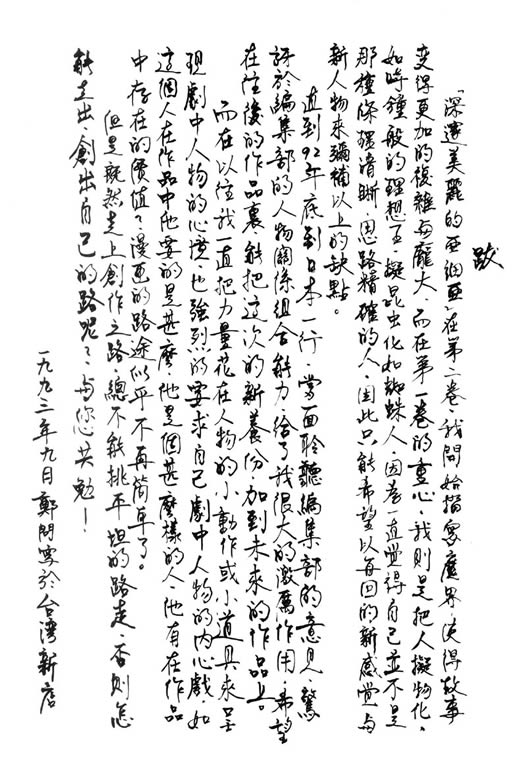 跋
「深邃美麗的亞細亞」在第二卷，我開始描寫魔界，使得故事
變得更加的複雜與龐大，而在第一卷的重心，我則是把人擬物化，
如時鐘般的理想王，擬昆虫化如蜘蛛人，因為一直覺得自己並不是
那種條理清晰，思路精確的人，因此只能希望以每回的新感覺與
新人物來彌補以上的缺點。
直到92年底到日本一行，當面聆聽編集部的意見，驚
訝於編集部的人物關係組合能力，給了我很大的激厲作用，希望
在往後的作品裏，能把這次的新養份，加到未來的作品上。
而在以往我一直把力量花在人物的小動作或小道具來呈
現劇中人物的心境，也強烈的要求自己劇中人物的內心戲，如
這個人在作品中他要的是甚麼，他是個甚麼樣的人，他有在作品
中存在的價值？漫画的路途似乎不再簡單了。
但是既然走上創作之路，總不能挑平坦的路走，否則怎
能走出，創出自己的路呢？與您共勉！
一九九三年九月鄭問寫於台灣新店